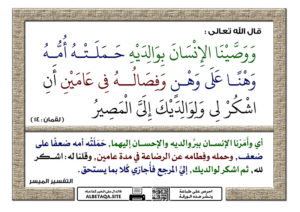 قال الله تعالى :
وَوَصَّيْنَا الإِنْسَانَ بِوَالِدَيْهِ حَمَلَتْهُ أُمُّهُ
وَهْنًا عَلَى وَهْنٍ وَفِصَالُهُ فِي عَامَيْنِ أَنِ
اشْكُرْ لِي وَلِوَالِدَيْكَ إِلَيَّ الْمَصِيرُ
(لقمان : ١٤)
أي وأمَرْنا الإنسان ببرِّ والديه والإحسان إليهما، حَمَلَتْه أمه ضعفًا على
ضعف، وحمله وفِطامه عن الرضاعة في مدة عامين، وقلنا له: اشكر
لله، ثم اشكر لوالديك، إليَّ المرجع فأُجازي كُلا بما يستحق.
التفسير الميسر
ALBETAQA.SITE
احرص على طباعة
ونشر هذه الورقة